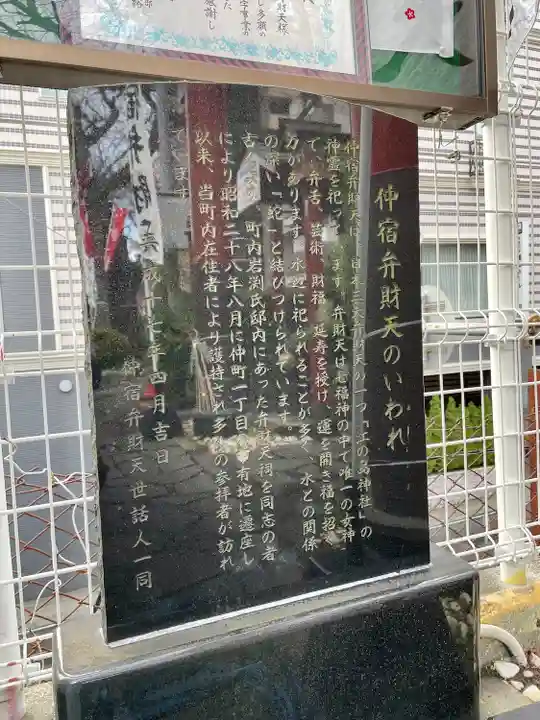 仲宿弁財天のいわれ
仲宿弁財天は、日本三大弁財天の一つ「江の島神社」の
神霊を祀って　ます。弁財天は七福神の中で唯一の女神
で、弁舌、芸術、財福、延寿を授け、運を開き福を招
力があります。水辺に祀られることが多く、水との関係
の深い「蛇」と結びつけられています。
古　　町内岩渕氏邸内にあった弁財天祠を同志の者
により昭和二十八年八月に仲町一丁目　有地に遷座し
以来、当町内在住者により護持され多くの参拝者が訪れ
ています
平成十七年四月吉日
仲宿弁財天世話人一同